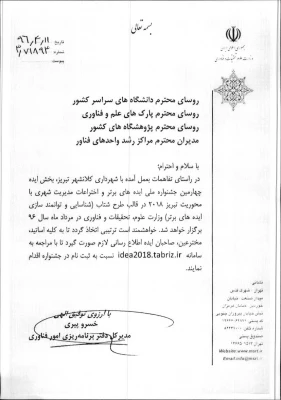 بسمه تعالی
تاریخ ۹۶,۴,۱۱
شماره ۳/۷۱۸۹۳
پیوست
جمهوری اسلامی ایران
وزارت علوم، تحقیقات و فناوری
روسای محترم دانشگاه های سراسر کشور
روسای محترم پارک های علم و فناوری
روسای محترم پژوهشگاه های کشور
مدیران محترم مراکز رشد واحدهای فناور
با سلام و احترام؛
در راستای تفاهمات بعمل آمده با شهرداری کلانشهر تبریز، بخش ایده
چهارمین جشنواره ملی ایده های برتر و اختراعات مدیریت شهری با
محوریت تبریز ۲۰۱۸ در قالب طرح شتاب (شناسایی و توانمند سازی
ایده های برتر) وزارت علوم، تحقیقات و فناوری در مرداد ماه سال ۹۶
برگزار خواهد شد. خواهشمند است ترتیبی اتخاذ گردد تا به کلیه اساتید،
مخترعین، صاحبان ایده اطلاع رسانی لازم صورت گیرد تا با مراجعه به
سامانه idea2018.tabriz.ir نسبت به ثبت نام در جشنواره اقدام
نمایند.
با آرزوی توفیق الهی
خسرو پیری
مدیر کل دفتر برنامه ریزی امور فناوری
نشانی
تهران - شهرک قدس